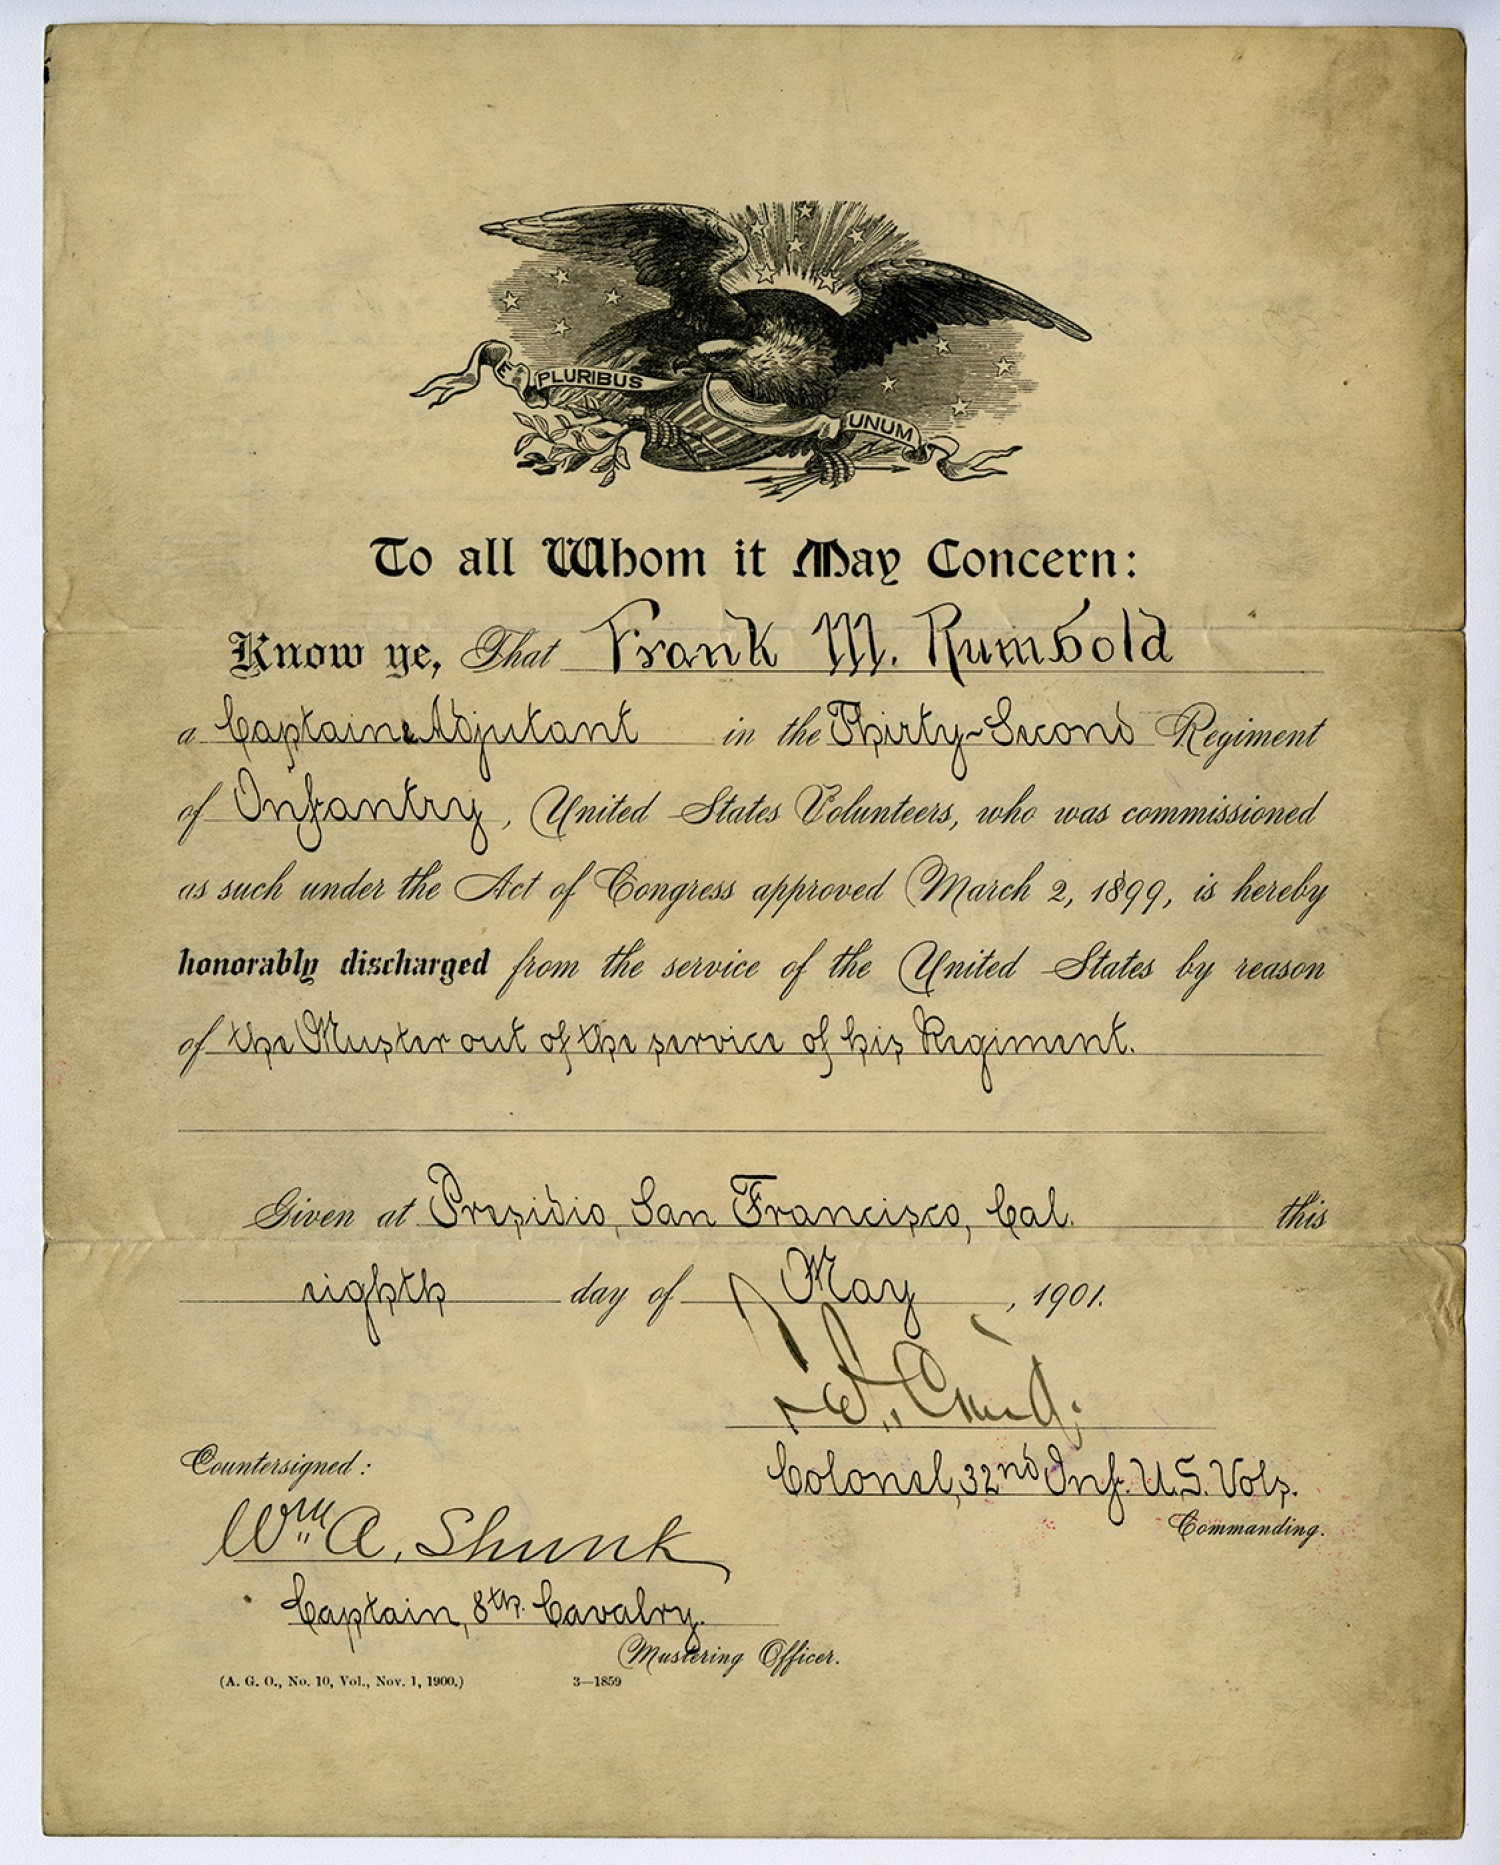 E PLURIBUS UNUM
To all Whom it May Concern:
Know ye, That Frank M. Rumbold
a Captain & Adjutant in the Thirty-Second Regiment
of Infantry, United States Volunteers, who was commissioned
as such under the Act of Congress approved March 2, 1899, is hereby
honorably discharged from the service of the United States by reason
of the Muster out of the service of his Regiment.
Given at Presidio, San Francisco, Cal. this
eighth day of May, 1901.
Colonel, 32nd Inf. U.S. Vols.
Commanding.
Countersigned:
Wm A. Shunk
Captain, 8th. Cavalry.
Mustering Officer.
(A. G. O., No. 10, Vol., Nov. 1, 1900.) 3—1859